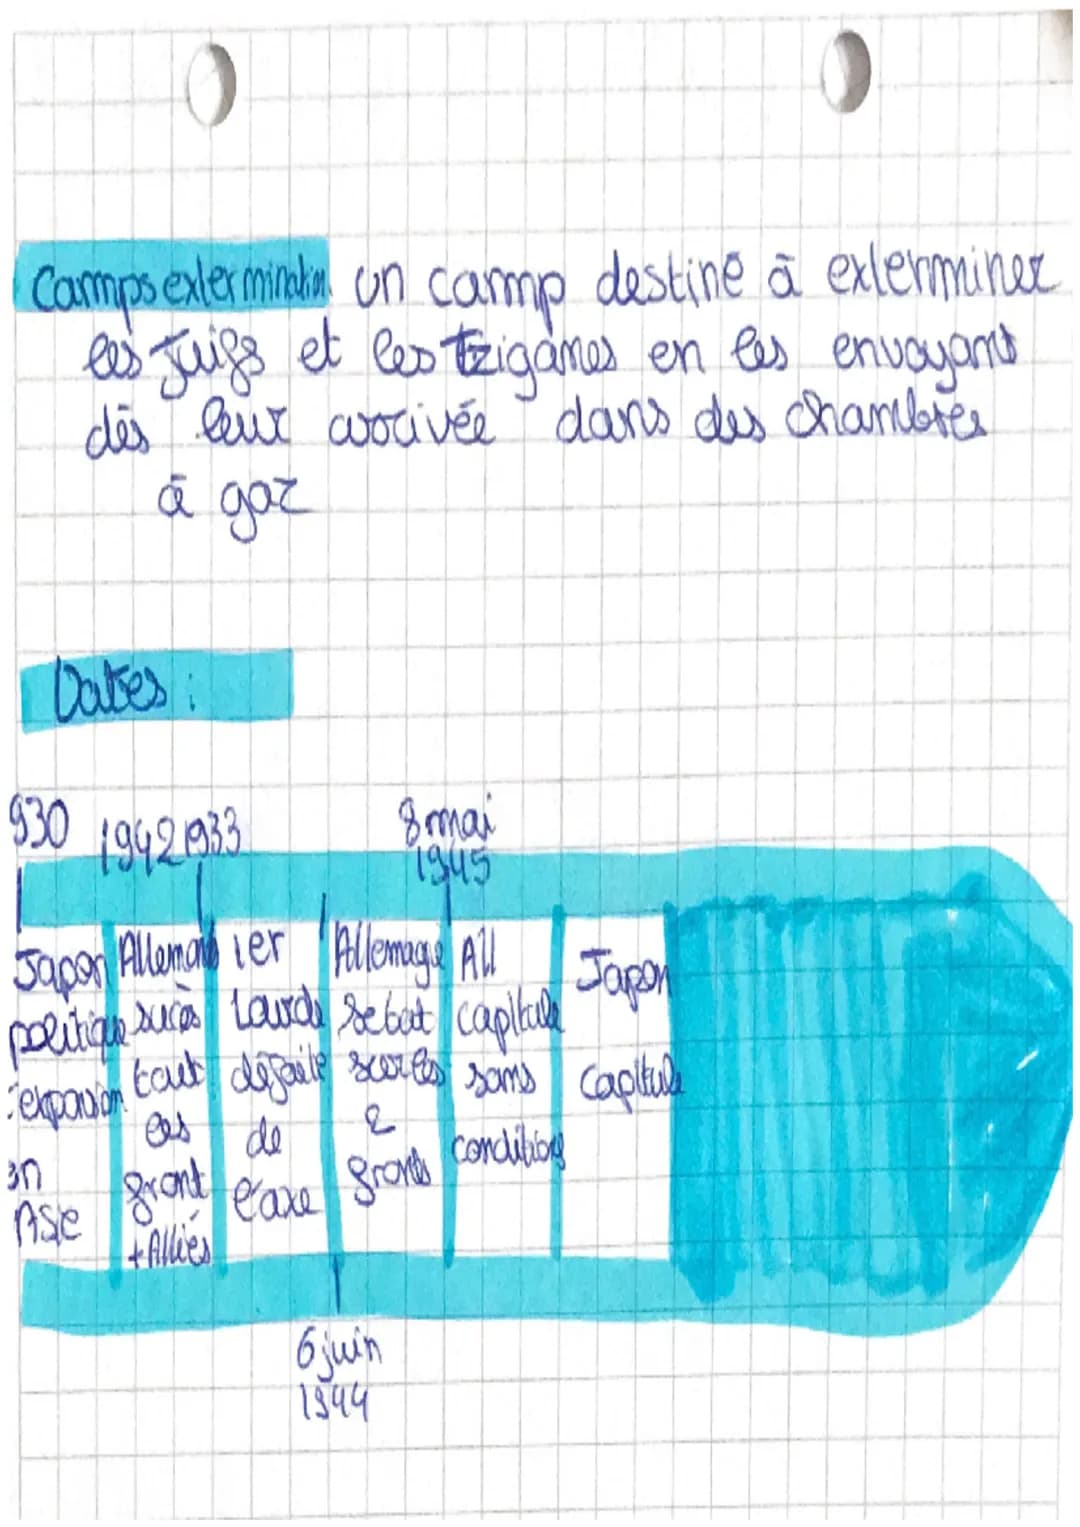 Camps extermination un camp destiné à exterminer
les Juifs et les Tziganes en les envoyant
dès leur arrivée dans des chambres
à gaz
Dates :
930 1942 1933 8 mai
1945
Japon
politique
expansion
en
Asie
Allemand
succès
tout
les
front
+ Alliés
1er
Lourde
défaite
de
l'axe
Allemagne
se bat
sur les
2
fronts
All
capitule
sans
conditions
Japon
Capitule
6 juin
1944